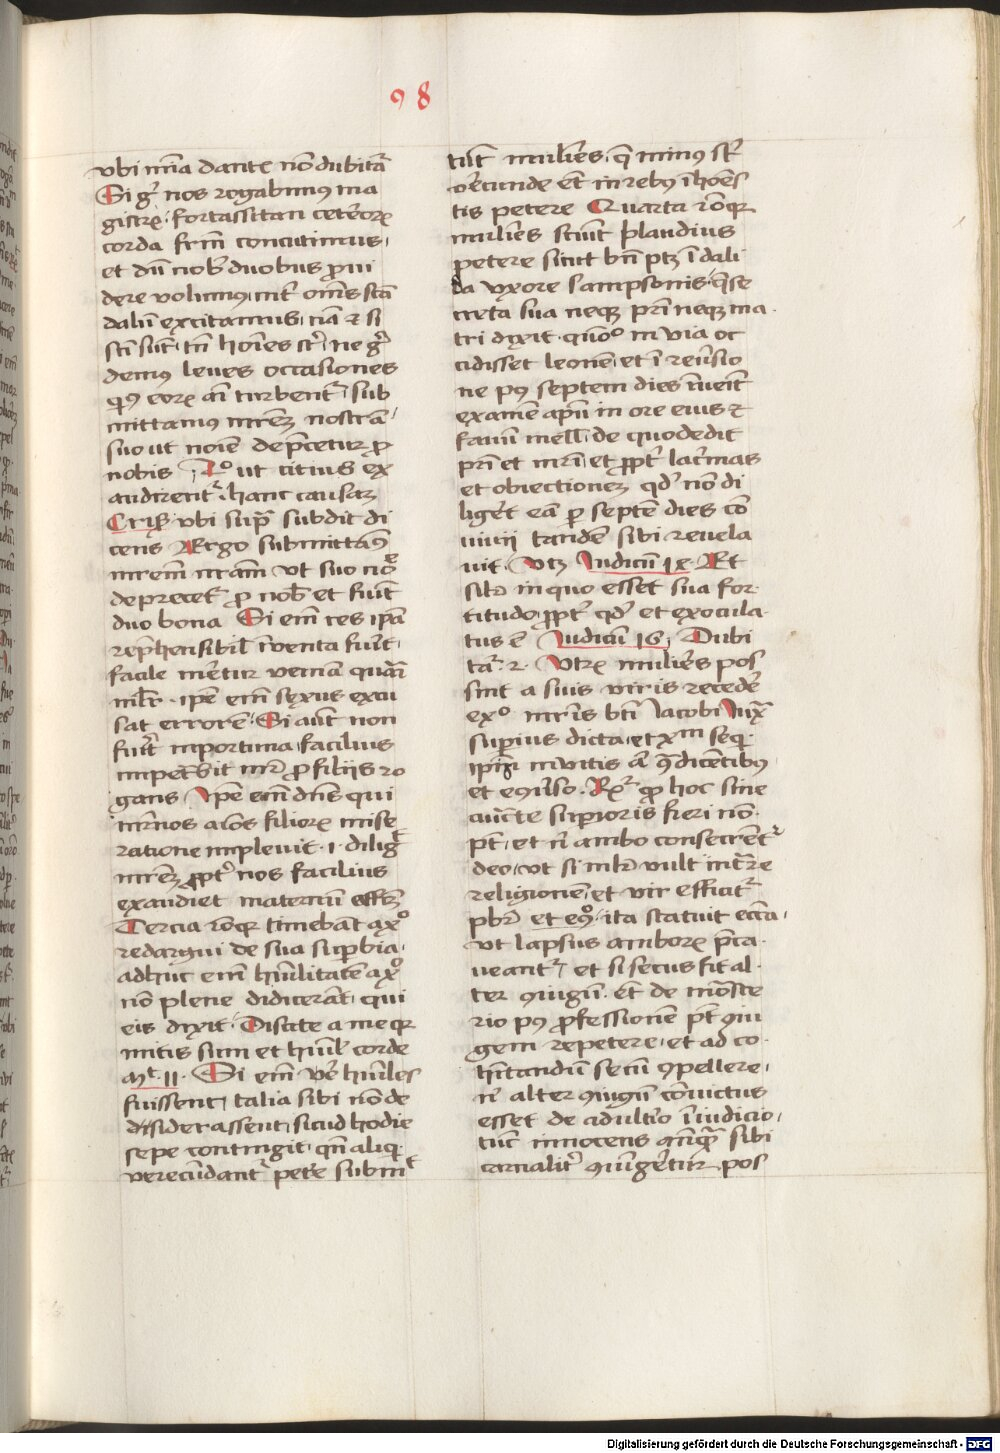 98
vbi mīa dantꝭ nō dubitā
Si gͥ nos rogabimus ma
gistrꝫ fortassitan ceteorꝫ
corda frm̄ concutimus
et dū nob̄ duobus ꝓui
dere volumus int̄ om̄s scā
dalū excitamus nā ⁊ si
scī sūt tn̄ hoīes st̄ ne gͥ
demus leues occasiones
qͥꝰ eorꝫ aī turbentᷣ sub
mittamus mrēꝫ nostrā
suo ut noīe dep̄cetur ꝓ
nobis ut citius ex
audirentᷣ hanc causaꝫ
Cris vbi sup̄ subdit di
cens Ergo submittāꝰ
mrem nrām vt suo noīe
deprecetᷣ ꝓ nob̄ et fiūt
duo bona Si em̄ res ipā
rep̄hensibil̄ īuenta fuīt
facile mētur veniā quā
ml̄r ipē em̄ sexus excu
sat errorē Si aūt non
fuīt inportuna facilius
impetᷣbit mr̄ ꝓ filiis ro
gans Ipē em̄ dn̄s qui
mr̄nos alōs filiorꝫ mise
ratione impleuit .i. diligͭ
mrēꝫ ꝓpt̄ nos facilius
exaudiet maternū effcͫ
Tercia rōqꝫ timebāt a xͦ
redargui de sua supbia
adhuc em̄ huīlitatē a xͦ
nō plene didicerāt qui
eis dixit Discite a me qꝫ
mitis sum et huīl corde
Mt̄ 11 Si em̄ ve hūiles
fuissent talia sibi nō de
disiderassent sicud hodie
sepe contingit qn̄ aliqͥ
verecūdantᷣ pete submͭ
tūt mulies q̄ minus st̄
vecunde ēt in rebꝰ īhoēs
tis petere Quarta rōqꝫ
mulies sciūt blandius
petere sicut bn̄ ptꝫ ī dali
da vxore sampsonis q̄ se
creta sua neqꝫ prī neqꝫ ma
tri dixit quōͦ in via oc
cidisset leonē et ī reusio
ne pꝰ septem dies īueīt
examē apū in ore eius ⁊
fauū mell̄ de quo dedit
prī et mrī et ꝓpt̄ lac̄mas
et obiectioneꝫ qd̄ nō di
liget eā ꝑ septē dies cō
uiuii tandē sibi reuela
uit vtꝫ Iudicū ix Et
silͬ in quo esset sua for
titudo ꝓpt̄ qd̄ et exocula
tus ē Iudicū 16 Dubi
tāᷣ 2 Vtrꝫ mulies pos
sint a suis viris recede
exͦ mr̄is btī Iacobi Iuxͣ
supius dicta et xᵐ seqꝫ
ipīꝫ inuitis ā ꝯdicētibꝰ
et eꝯuso Rͬ qꝫ hoc sine
aucte supioris fieri nō
pt̄ et n̄ ambo consecrentᷣ
deo vt si mlr̄ vult int̄re
religionē et vir efficitᷣ
pbr̄ et eꝯͦ ita statuit eccᷣa
vt lapsus amborꝫ p̄ca
ueantᷣ et si secus fit al
ter ꝯiugū ēt de mōste
rio pꝰ ꝓfessionē pt̄ ꝯiu
gem repetere et ad co
hītandū secū ꝯpellere
n̄ alter ꝯiugū cōuictus
esset de adultīo ī iudicio
tūc innocens nūqͣ̄ sibi
carnalit̄ ꝯiūgetur pos
Digitalisierung gefördert durch die Deutsche Forschungsgemeinschaft - DFG